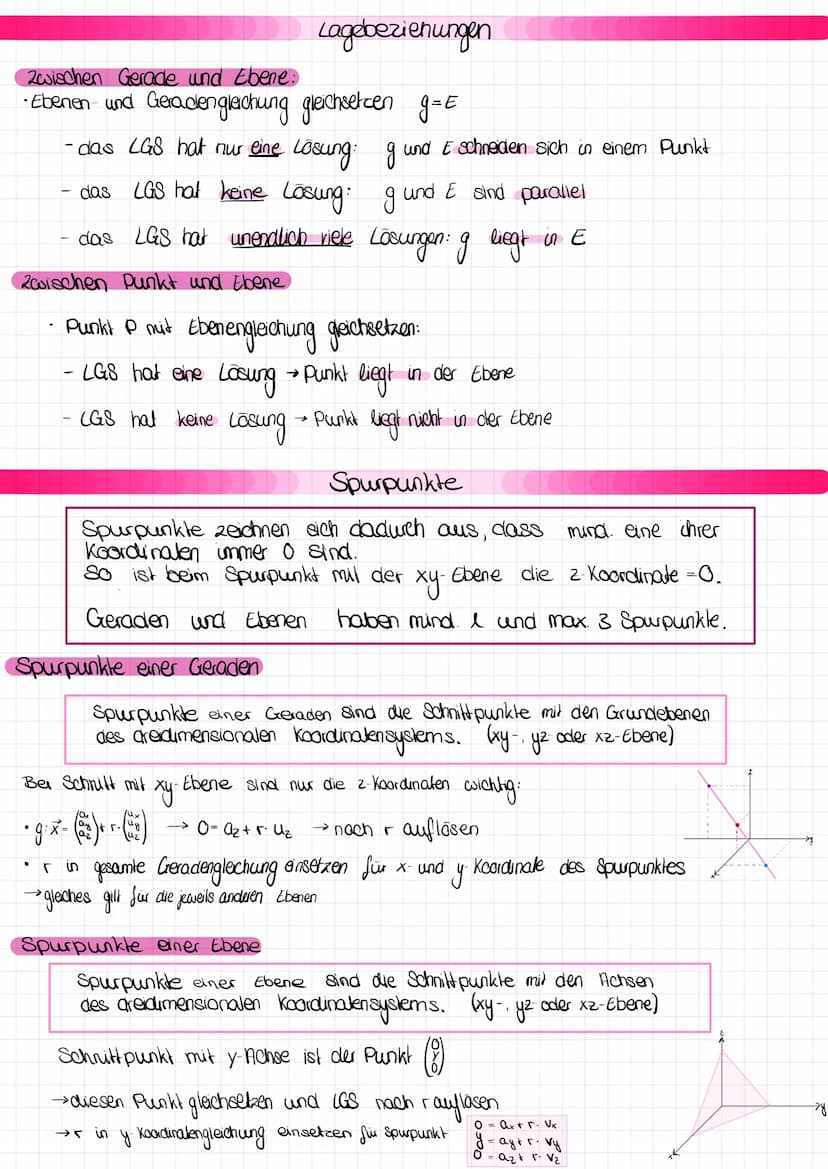 Lagebeziehungen
Zwischen Gerade und Ebene:
· Ebenen- und Geradengleichung gleichsetzen g=E
- das LGS hat nur eine Lösung: g und E schneiden sich in einem Punkt
- das LGS hat keine Lösung: g und E sind parallel
- das LGS hat unendlich viele Lösungen: g liegt in E
Zwischen Punkt und Ebene
· Punkt P mit Ebenengleichung gleichsetzen:
- LGS hat eine Lösung → Punkt liegt in der Ebene
- LGS hat keine Lösung → Punkt liegt nicht in der Ebene
Spurpunkte
Spurpunkte zeichnen sich dadurch aus, dass mind. eine ihrer
Koordinaten immer 0 sind.
So ist beim Spurpunkt mit der xy-Ebene die z-Koordinate =0.
Geraden und Ebenen haben mind. 1 und max. 3 Spurpunkte.
Spurpunkte einer Geraden
Spurpunkte einer Geraden sind die Schnittpunkte mit den Grundebenen
des dreidimensionalen Koordinatensystems. (xy-, yz oder xz-Ebene)
Bei Schnitt mit xy-Ebene sind nur die z-Koordinaten wichtig:
z
· g: x⃗ = (ax ay az) + r · (ux uy uz) → 0 = az + r · uz → nach r auflösen
y
· r in gesamte Geradengleichung einsetzen für x- und y-Koordinate des Spurpunktes
x
→ gleiches gilt für die jeweils anderen Ebenen
Spurpunkte einer Ebene
Spurpunkte einer Ebene sind die Schnittpunkte mit den Achsen
des dreidimensionalen Koordinatensystems. (xy-, yz oder xz-Ebene)
z
Schnittpunkt mit y-Achse ist der Punkt (0 y 0)
→ diesen Punkt gleichsetzen und LGS nach r auflösen
y
→ r in y-Koordinatengleichung einsetzen für Spurpunkt
0 = ax + r · vx
y = ay + r · vy
0 = az + r · vz
x